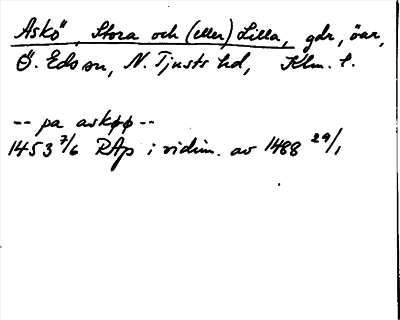 Askö, Stora och (eller) Lilla, gdr, öar,
Ö. Eds sn, N. Tjusts hd, Klm. l.
-- pa askøø --
1453 7/6 RAp i vidim. av 1488 29/1